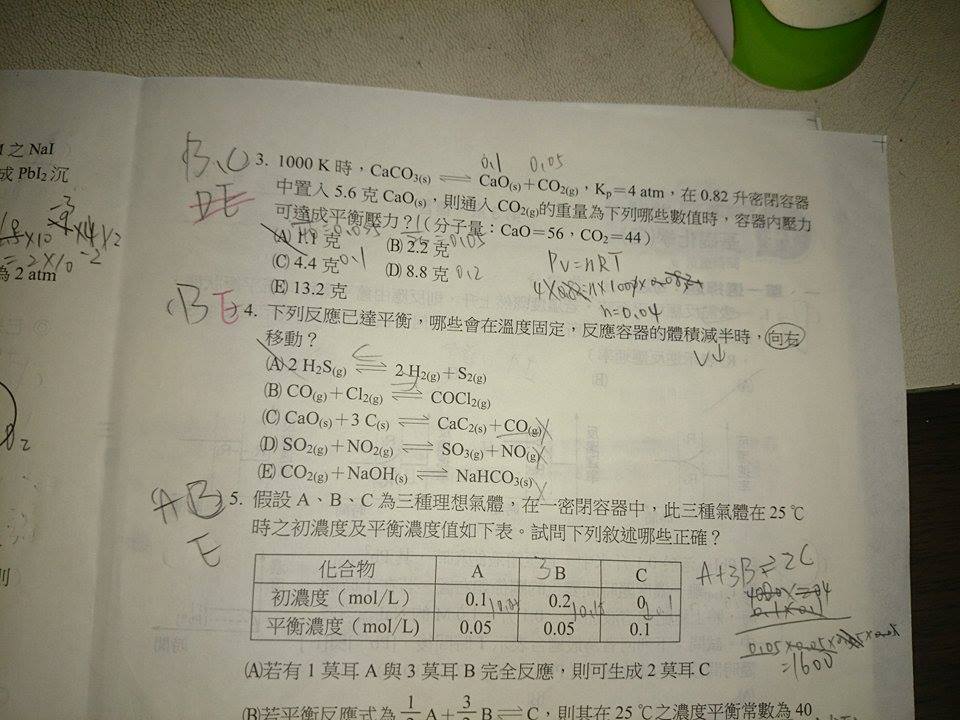 之 NaI
成 PbI₂ 沉
為 2 atm
B.C
DE
3. 1000 K 時，CaCO₃(s) ⇌ CaO(s)＋CO₂(g)，Kp＝4 atm，在 0.82 升密閉容器
0.1 0.05
中置入 5.6 克 CaO(s)，則通入 CO₂(g)的重量為下列哪些數值時，容器內壓力
可達成平衡壓力？(分子量：CaO＝56，CO₂＝44)
(A) 1.1 克 (B) 2.2 克 0.05
(C) 4.4 克 0.1 (D) 8.8 克 0.2
(E) 13.2 克
PV=nRT
n=0.04
BE
4. 下列反應已達平衡，哪些會在溫度固定，反應容器的體積減半時，向右
移動？
V↓
(A) 2 H₂S(g) ⇌ 2 H₂(g)＋S₂(g)
(B) CO(g)＋Cl₂(g) ⇌ COCl₂(g)
(C) CaO(s)＋3 C(s) ⇌ CaC₂(s)＋CO(g)
(D) SO₂(g)＋NO₂(g) ⇌ SO₃(g)＋NO(g)
(E) CO₂(g)＋NaOH(s) ⇌ NaHCO₃(s)
AB
E
5. 假設 A、B、C 為三種理想氣體，在一密閉容器中，此三種氣體在 25 ℃
時之初濃度及平衡濃度值如下表。試問下列敘述哪些正確？
化合物 A 3B C
初濃度（mol/L） 0.1 0.2 0
平衡濃度（mol/L） 0.05 0.05 0.1
A+3B⇌2C
=1600
(A)若有 1 莫耳 A 與 3 莫耳 B 完全反應，則可生成 2 莫耳 C
(B)若平衡反應式為 1/2 A＋3/2 B ⇌ C，則其在 25 ℃之濃度平衡常數為 40